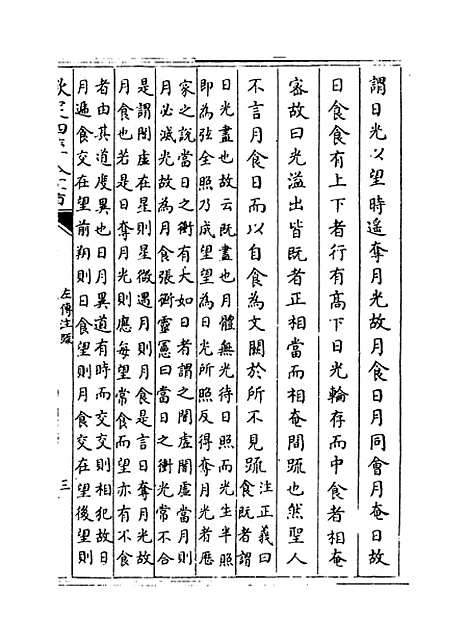 謂日光以望時遥奪月光故月食日月同會月奄日故
日食食有上下者行有高下日光輪存而中食者相奄
密故日光溢出皆既者正相當而相奄間疏也然聖人
不言月食日而以自食為文闕於所不見疏
注正義曰
食既者謂
日光盡也故云既盡也月體無光待日照而光生半照
即為弦全照乃成望望為日光所照反得奪月光者厯
家之說當日之衝有大如日者謂之闇虚闇虚當月則
月必滅光故為月食張衡靈憲曰當日之衝光常不合
是謂闇虚在星則星微遇月則月食是言日奪月光故
月食也若是日奪月光則應每望常食而望亦有不食
者由其道度異也日月異道有時而交交則相犯故日
月遞食交在望前朔則日食望則月食交在望後望則
欽定四庫全書
左傳注疏
三